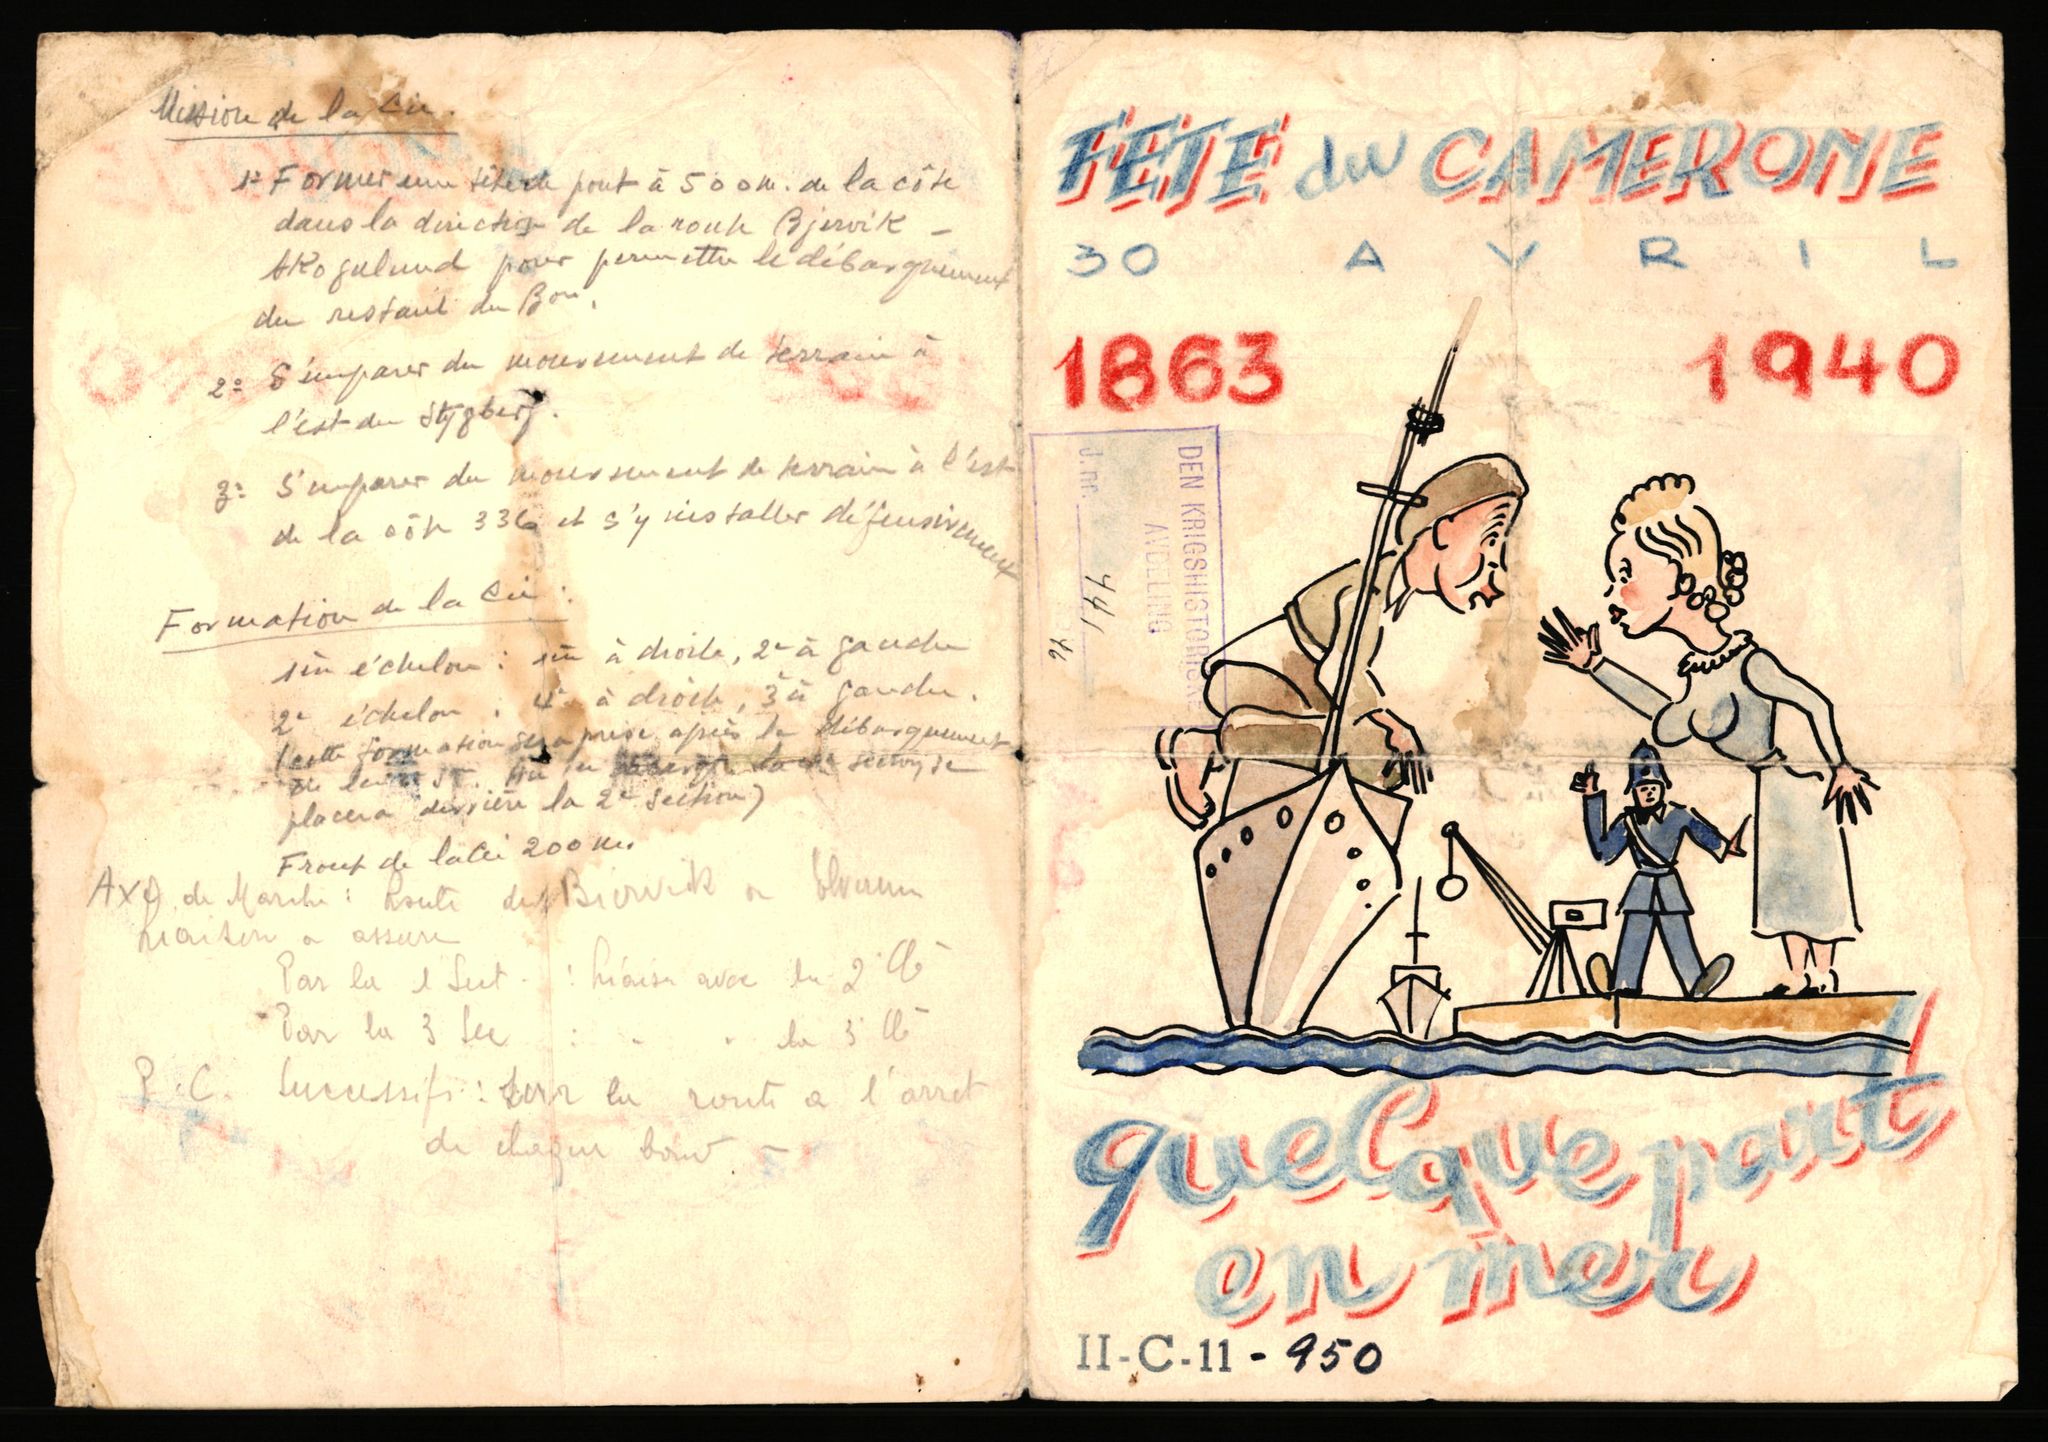 Mission de la Cie.
1º Former une tête de pont à 500m. de la côte
dans la direction de la route Bjervik -
skoglund pour permettre le débarquement
du restant du Bon.
2º S'emparer du mouvement de terrain à
l'est du Stygberg.
3º S'emparer du mouvement de terrain à l'est
de la côte 336 et s'y installer défensivement
Formation de la Cie :
1er échelon : 1ère à droite, 2e à gauche
2e échelon : 4e à droite, 3e à gauche.
(cette formation sera prise après le débarquement
de la section se
placera derrière la 2e section)
Front de la Cie 200 m.
Axe de Marche : Route de Biervik a Elvenes
Liaison a assure
Par la 1 Sect. : Liaison avec la 2 Cie
Par la 3 Sec : " " la 3 Cie
P.C. Successifs : Sur la route a l'arret
de chaque bond -
FÊTE du CAMERONE
30 AVRIL
1863 1940
DEN KRIGSHISTORISKE
AVDELING
J.nr. 144
quelque part
en mer
II-C-11-950